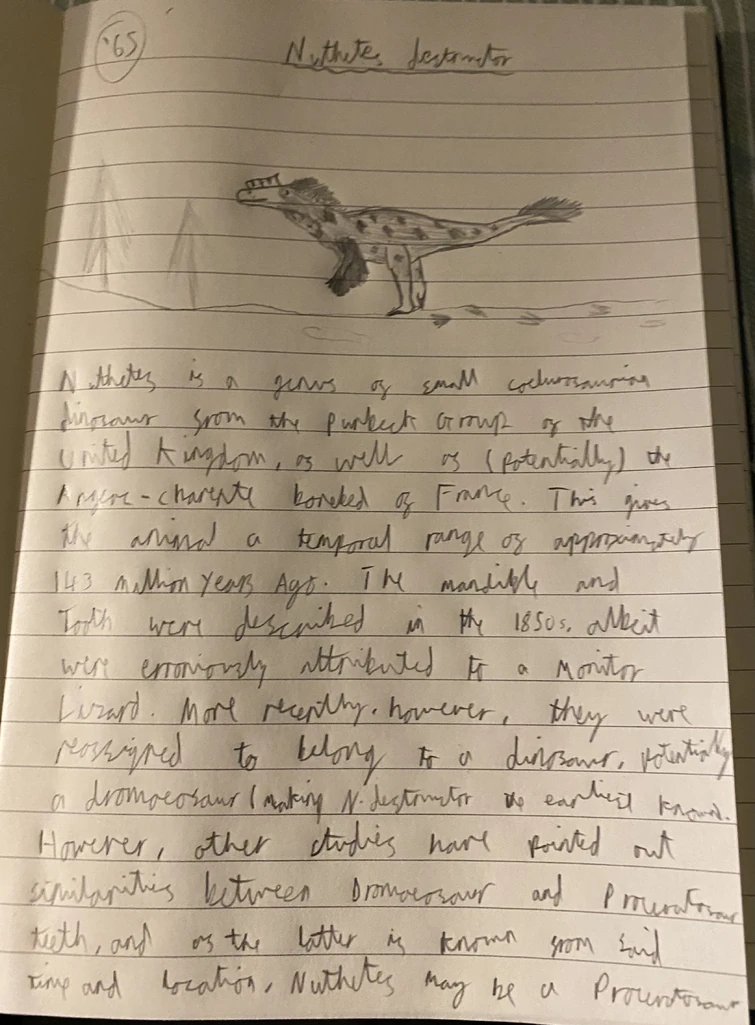 '65
Nuthetes destructor
Nuthetes is a genus of small coelurosaurian
dinosaur from the Purbeck Group of the
United Kingdom, as well as (potentially) the
Angeac-charente bonebed of France. This gives
the animal a temporal range of approximately
143 million Years Ago. The mandible and
Tooth were described in the 1850s, albeit
were erroniously attributed to a Monitor
Lizard. More recently, however, they were
reassigned to belong to a dinosaur, potentially
a dromaeosaur (making N. destructor the earliest known.
However, other studies have pointed out
similarities between Dromaeosaur and Proceratosaur
teeth, and as the latter is known from said
time and location, Nuthetes may be a Proceratosaur